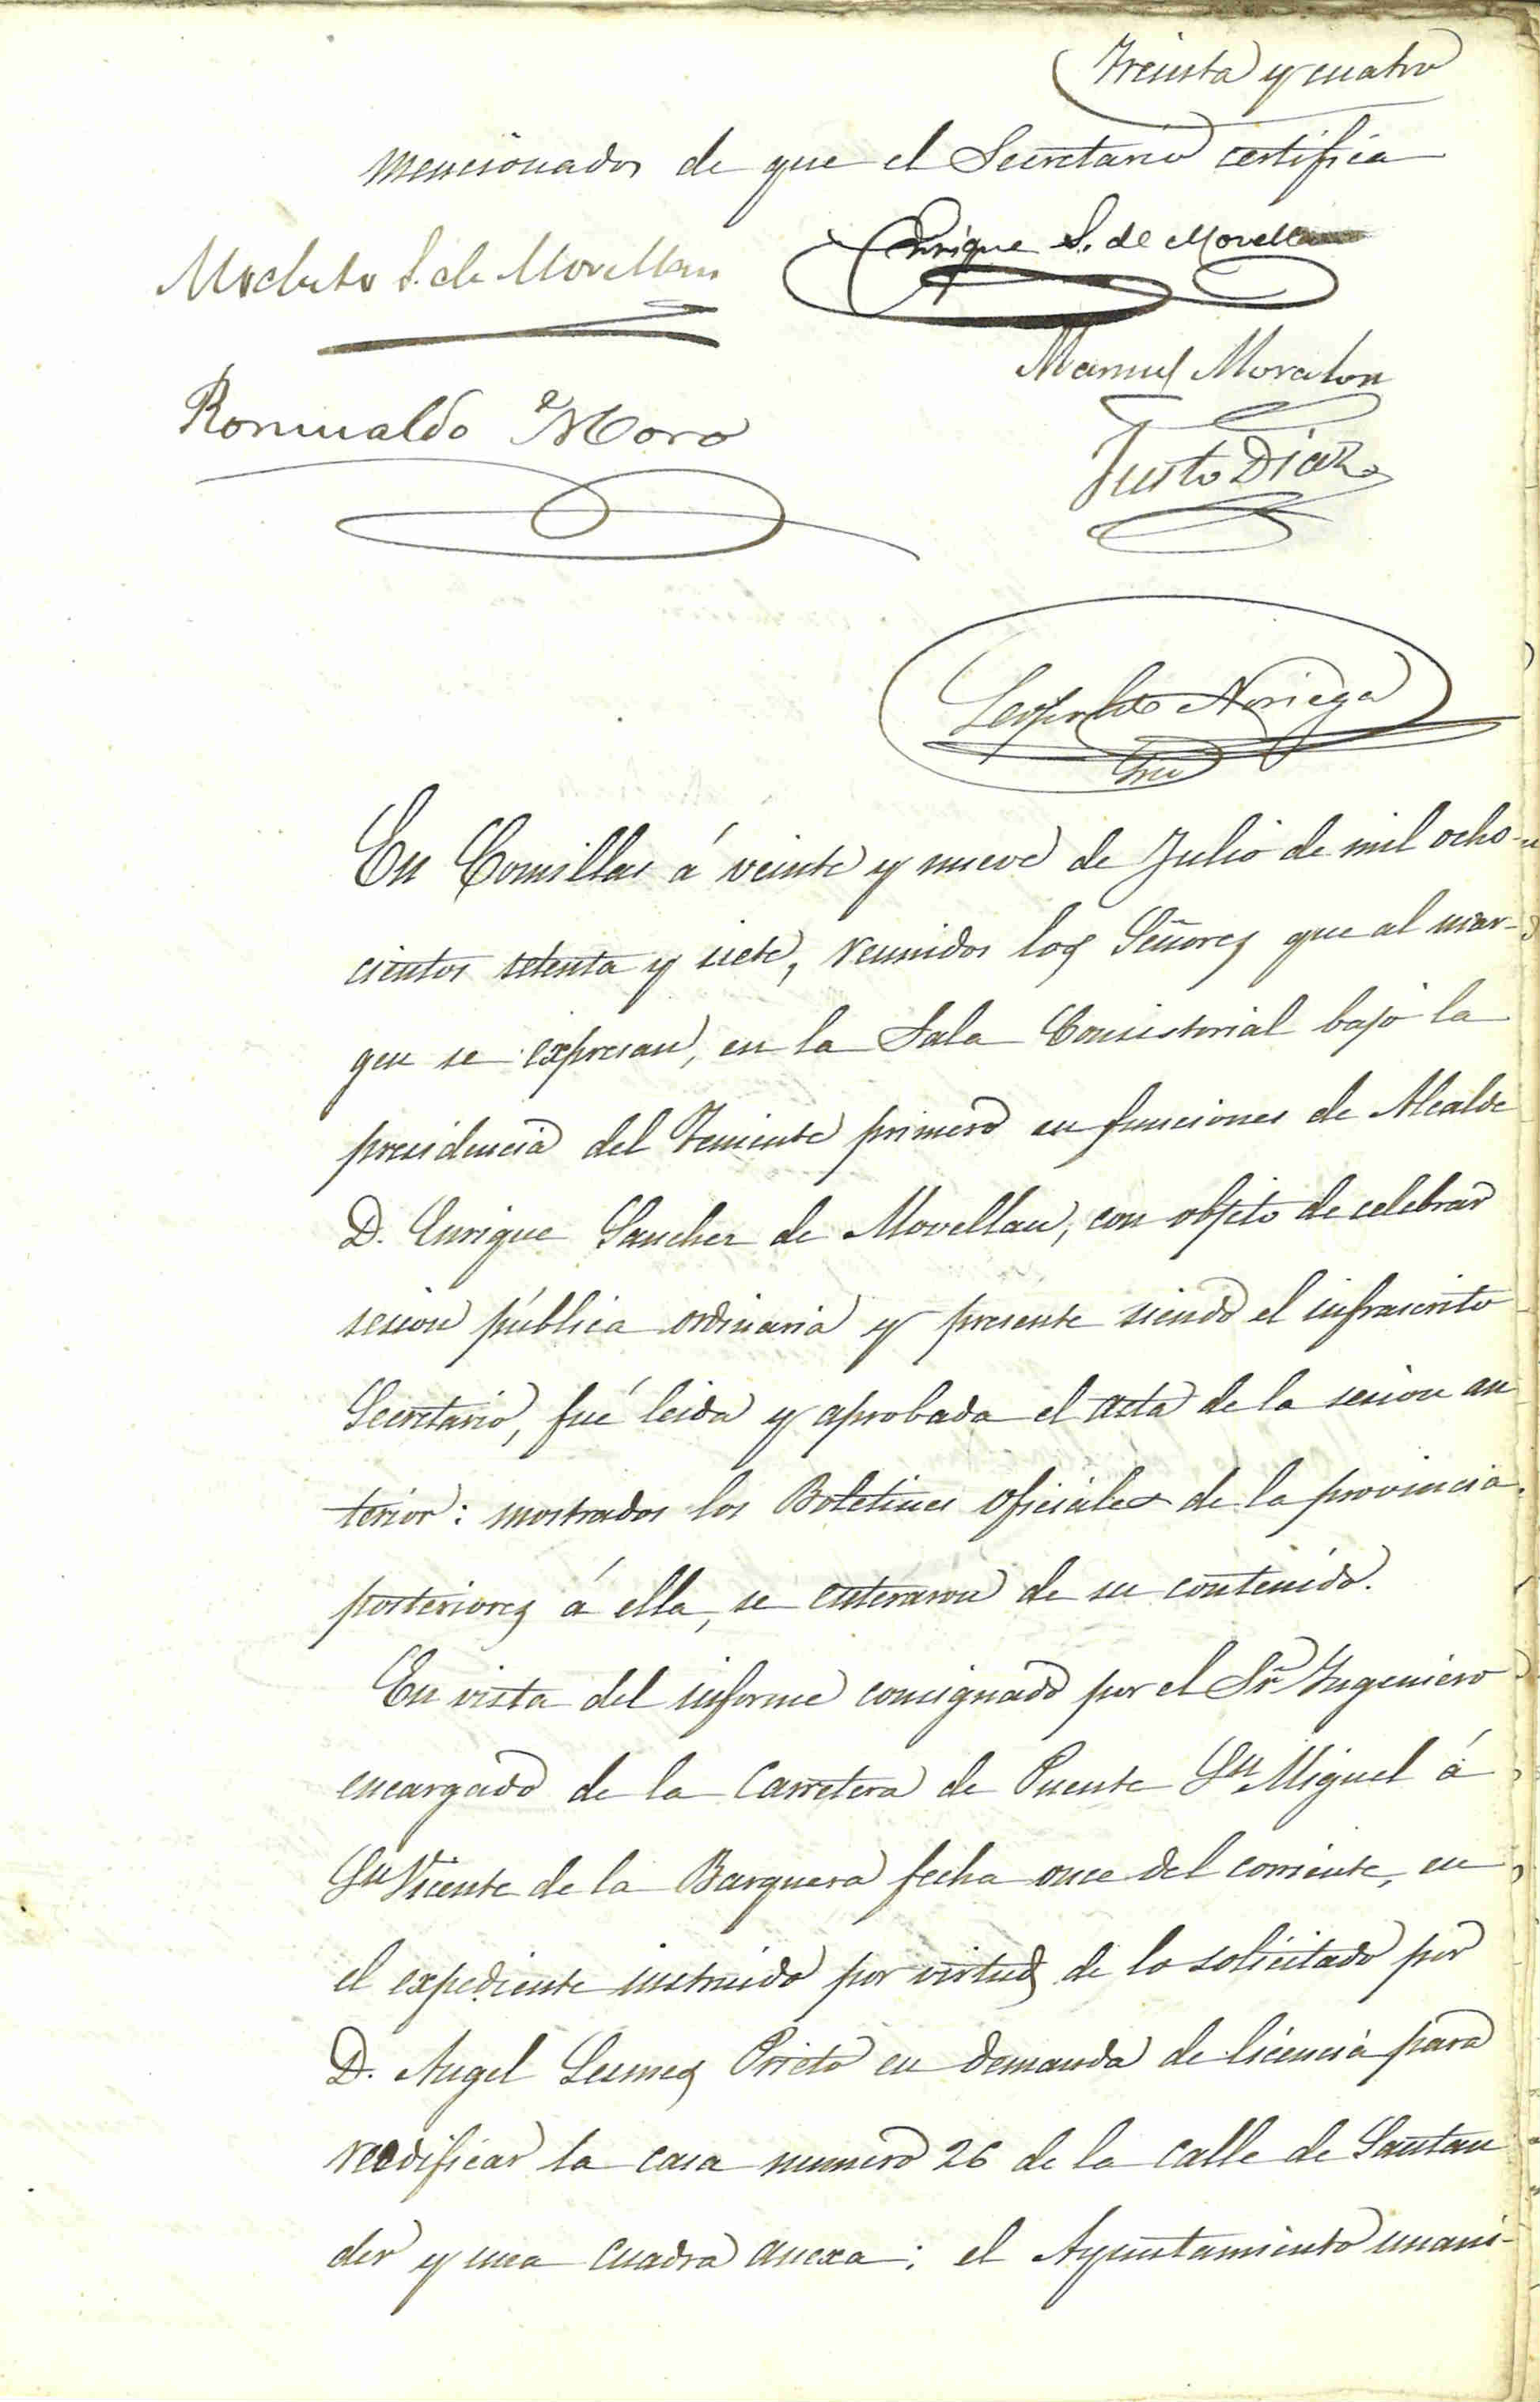 Treinta y cuatro
mencionados de que el Secretario certifica
Modesto S. de Movellan
Enrique S. de Movellan
Manuel Moraton
Romualdo Moro
Justo Diaz
Leopoldo Noriega
Srio
En Comillas á veinte y nueve de Julio de mil ocho-
cientos setenta y siete, reunidos los Señores que al mar-
gen se expresan, en la Sala Consistorial bajo la
presidencia del Teniente primero en funciones de Alcalde
D. Enrique Sanchez de Movellan, con objeto de celebrar
sesion pública ordinaria y presente siendo el infrascrito
Secretario, fué leida y aprobada el acta de la sesion an
terior: mostrados los Boletines oficiales de la provincia
posteriores á ella, se enteraron de su contenido.
En vista del informe consignado por el Sr Ingeniero
encargado de la Carretera de Puente Sn Miguel á
Sn Vicente de la Barquera fecha once del corriente, en
el expediente instruido por virtud de lo solicitado por
D. Angel Lesmes Prieto en demanda de licencia para
reedificar la casa numero 26 de la calle de Santan
der y una cuadra anexa: el Ayuntamiento unani-